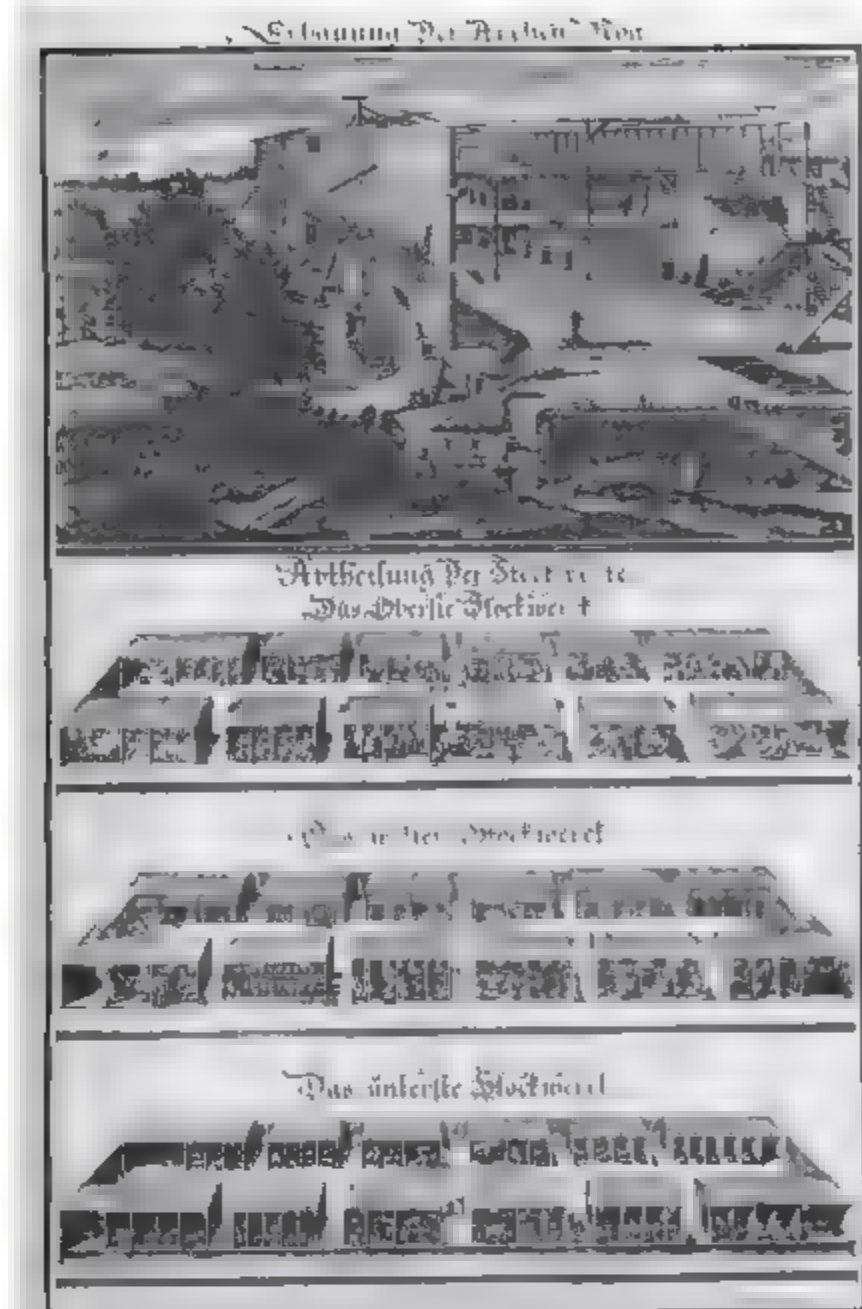 Erbauung Der Archen Noæ
Abtheilung Der Stockwercke
Das Oberste Stockwerck
Das Stockwerck
Das unterste Stockwerck